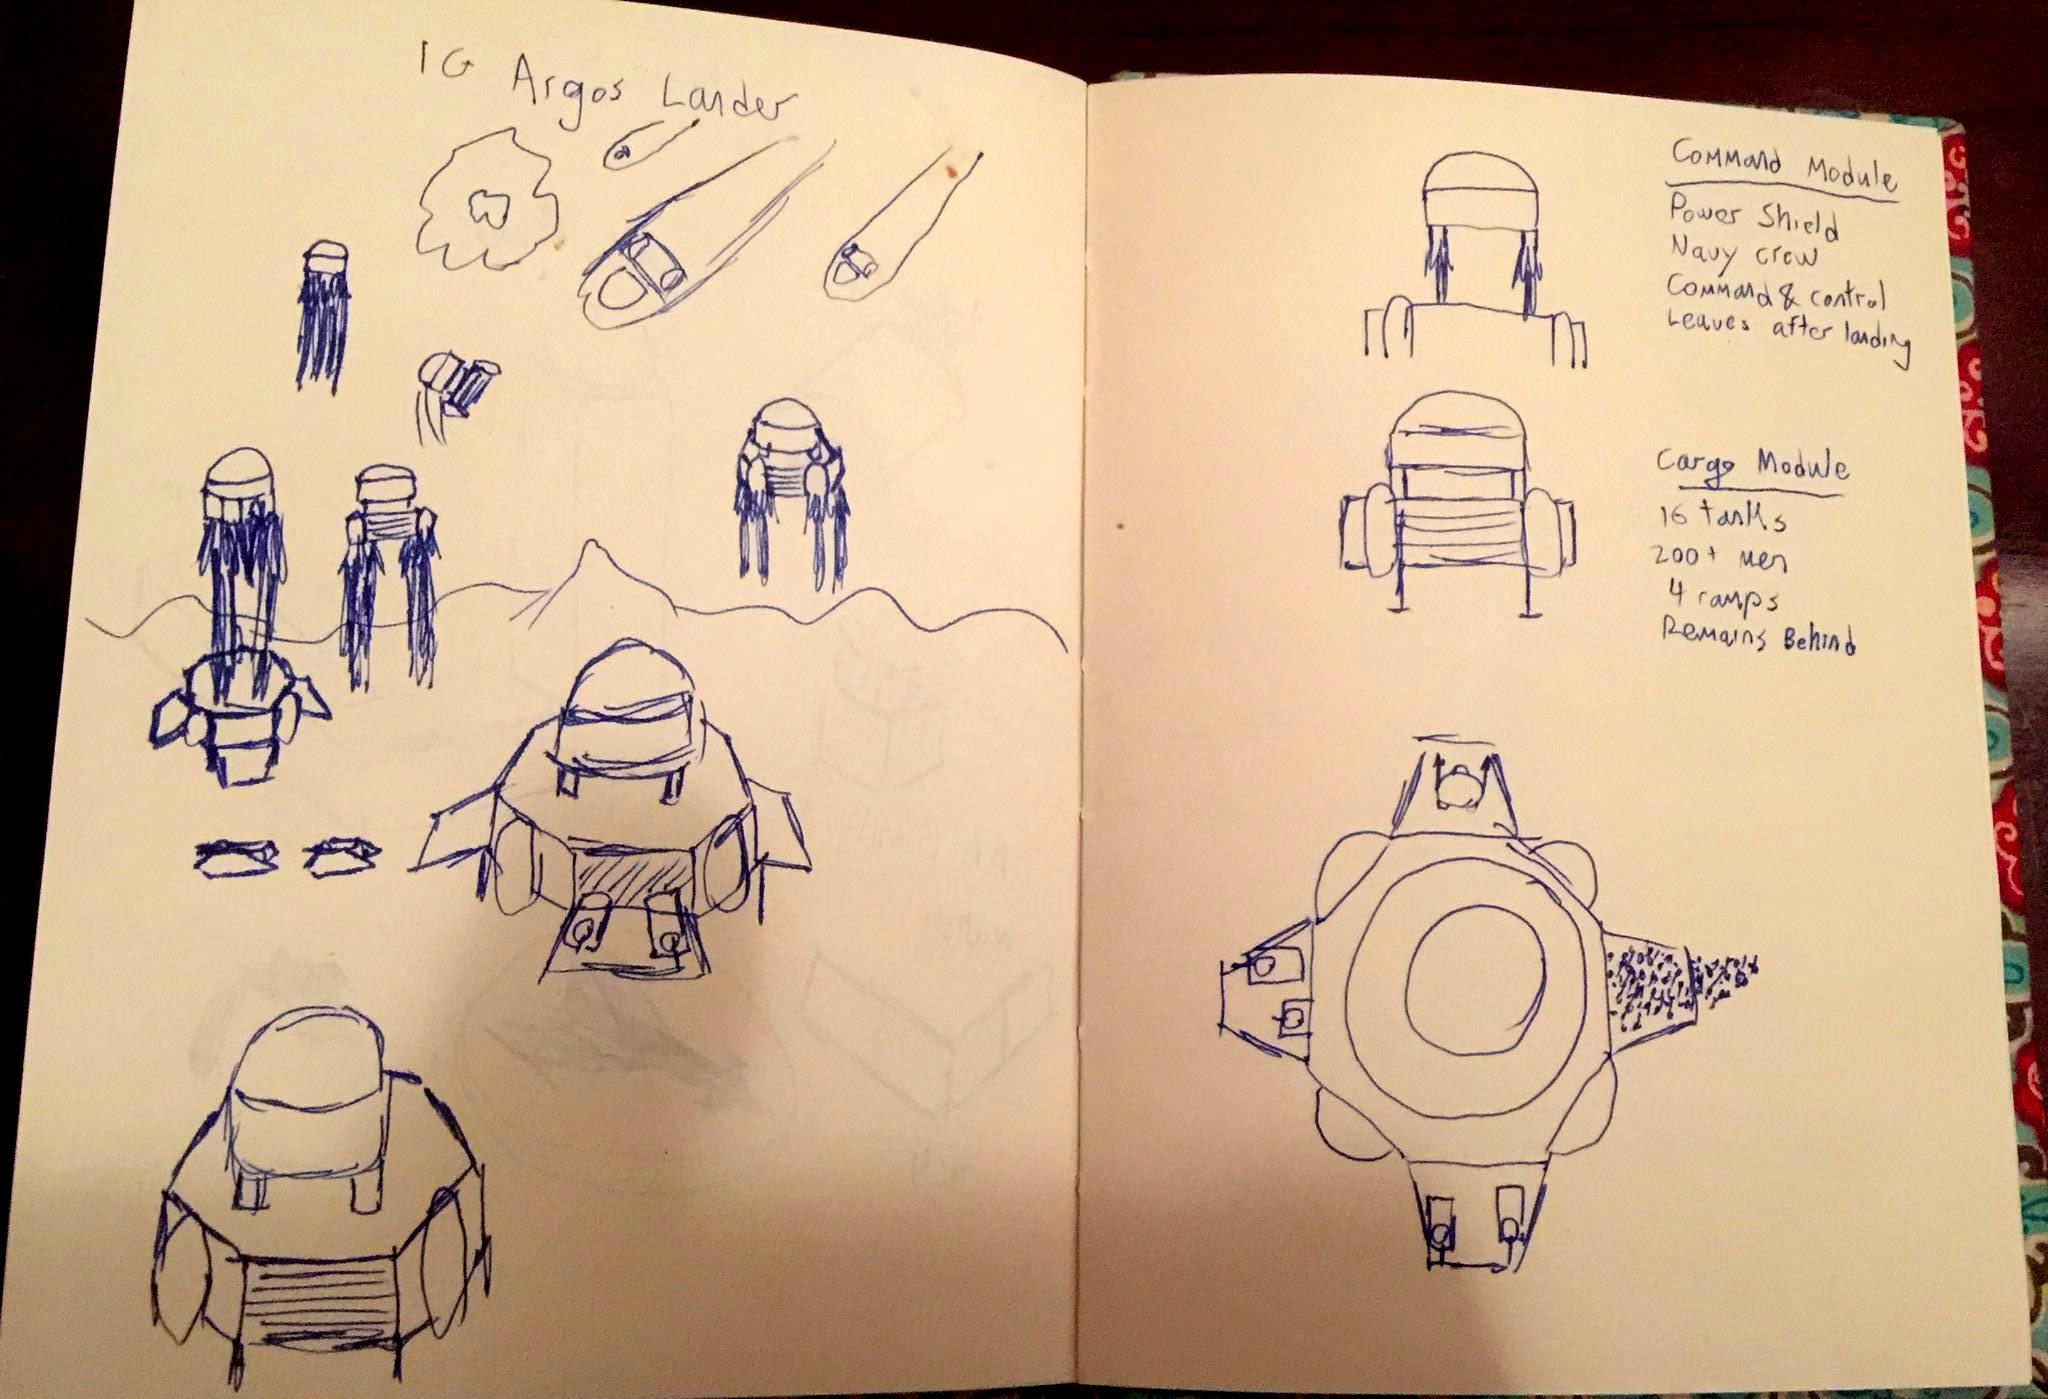 IG Argos Lander
Command Module
Power Shield
Navy crew
Command & control
Leaves after landing
Cargo Module
16 tanks
200+ men
4 ramps
Remains Behind